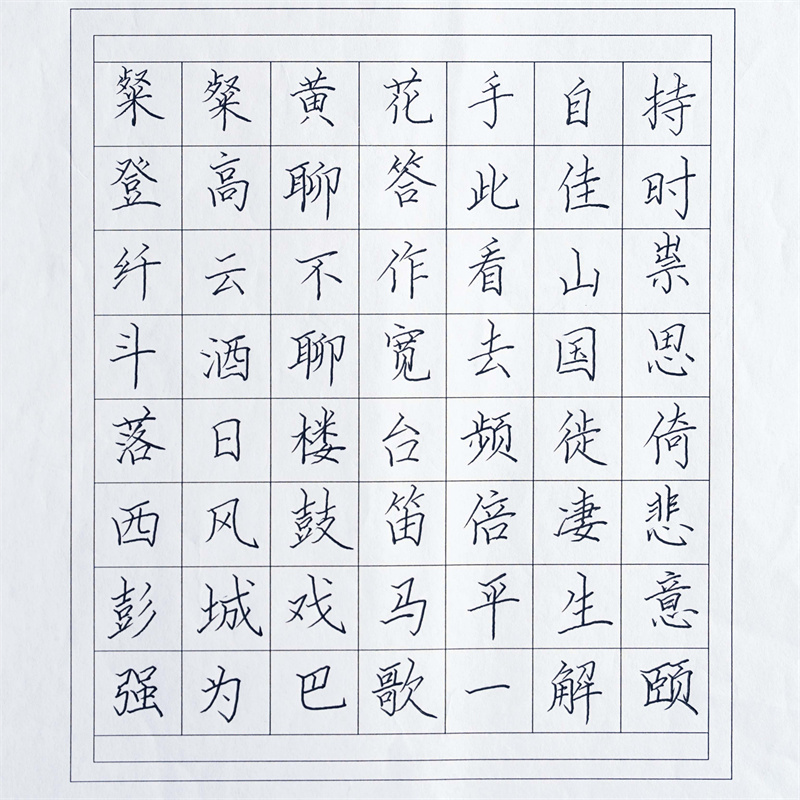 粲粲黄花手自持
登高聊答此佳时
纤云不作看山祟
斗酒聊宽去国思
落日楼台频徙倚
西风鼓笛倍凄悲
彭城戏马平生意
强为巴歌一解颐